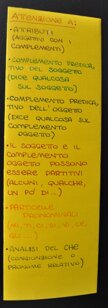 ATTENZIONE A:
• ATTRIBUTI
(AGGETTIVI CON I
COMPLEMENTI)
• COMPLEMENTO PREDICA
TIVO DEL SOGGETTO
(DICE QUALCOSA
SUL SOGGETTO)
• COMPLEMENTO PREDICA
TIVO DELL'OGGETTO
(DICE QUALCOSA SUL
COMPLEMENTO
OGGETTO)
• IL SOGGETTO E IL
COMPLEMENTO
OGGETTO POSSONO
ESSERE PARTITIVI
(ALCUNI, QUALCHE,
UN PO' DI ...)
• PARTICELLE
PRONOMINALI
(MI, TI, CI, SI, VI,
• ANALISI DEL CHE
(CONGIUNZIONE O
PRONOME RELATIVO)